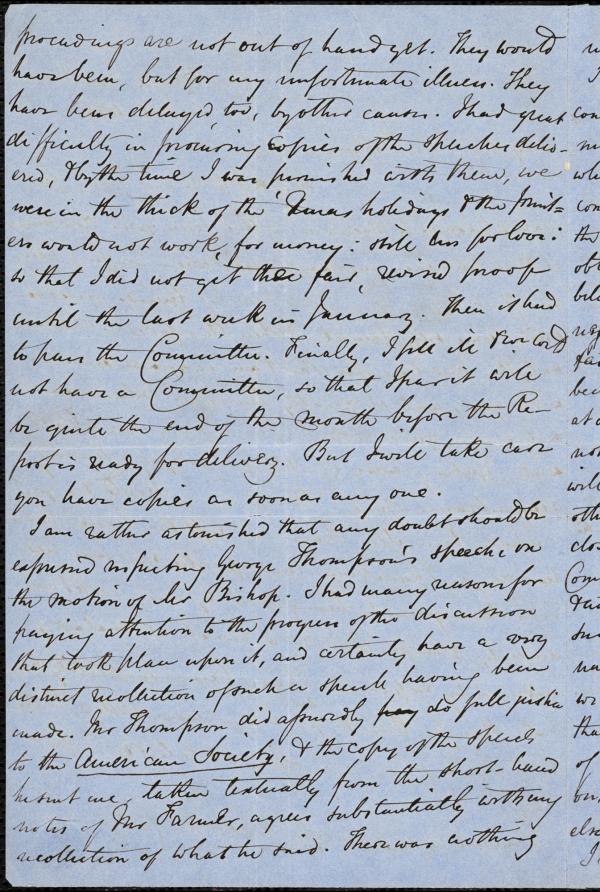 proceedings are not out of hand yet. They would
have been, but for my unfortunate illness. They
have been delayed, too, by other causes. I had great
difficulty in procuring copies of the speeches deliv-
ered, & by the time I was furnished with them, we
were in the thick of the Xmas holidays & the Print-
ers would not work, for money: still less for love:
so that I did not get the fair, revised proof
until the last week in January. Then it had
to pass the Committee. Finally, I fell ill & we cord
not have a Committee, so that I fear it will
be quite the end of the month before the Re-
port is ready for delivery. But I will take care
you have copies as soon as any one.
I am rather astonished that any doubt should be
expressed respecting George Thompson's speech on
the motion of Mr Bishop. I had many reasons for
paying attention to the progress of the discussion
that took place upon it, and certainly have a very
distinct recollection of such a speech having been
made. Mr Thompson did assuredly do full justice
to the American Society, & the copy of the speech
he sent me, taken textually from the short-hand
notes of Mr Farmer, agrees substantially with my
recollection of what he said. There was nothing